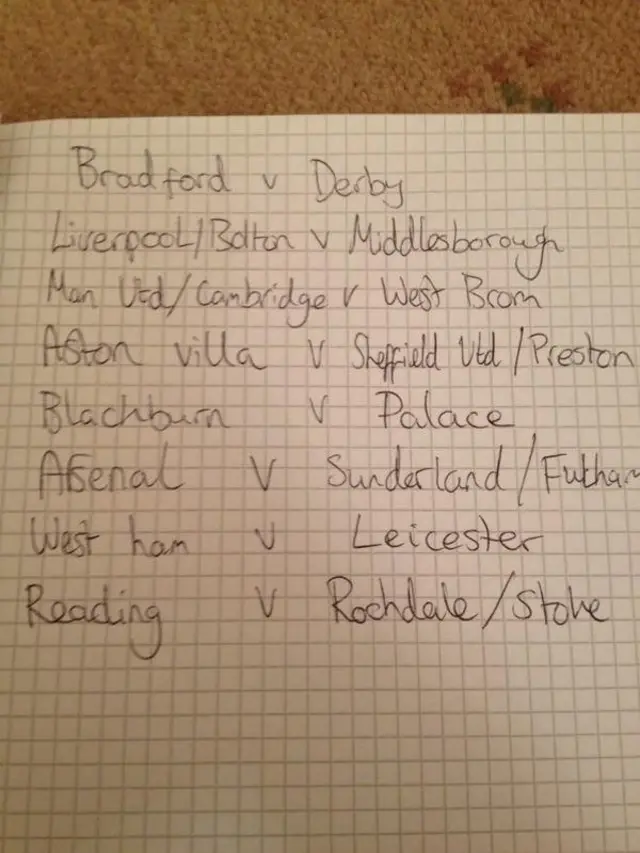 Bradford v Derby
Liverpool/Bolton v Middlesborough
Man Utd/Cambridge v West Brom
Aston villa v Sheffield Utd/Preston
Blackburn v Palace
Arsenal v Sunderland/Fulham
West ham v Leicester
Reading v Rochdale/Stoke